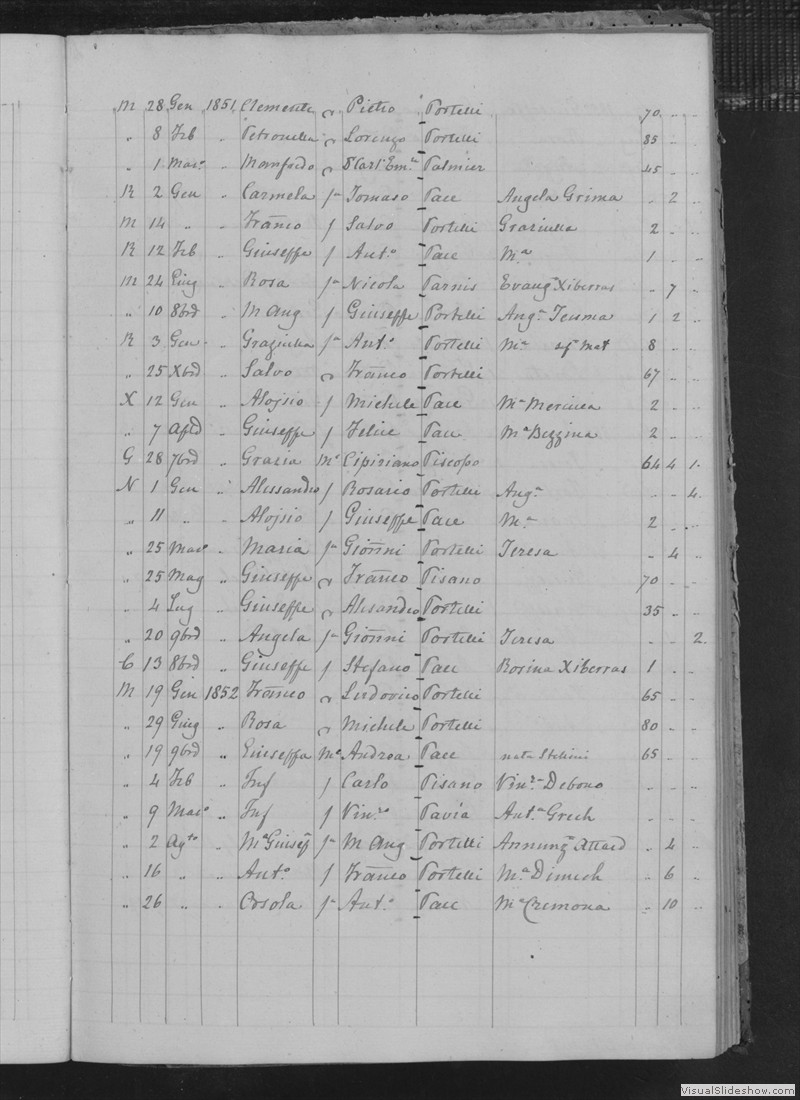 M 28 Gen 1851 Clemente Pietro Portelli 70 .. ..
" 8 Feb " Petronilla Lorenzo Portelli 85 .. ..
" 1 Mar° " Manfredo Palmier 45 .. ..
R 2 Gen " Carmela fª Tomaso Pace Angela Grima .. 2 ..
M 14 " " Franco f Salvo Portelli Graziulla 2 .. ..
R 12 Feb " Giuseppe f Ant.° Pace M.ª 1 .. ..
M 24 Giug " Rosa fª Nicola Parnis Evang.ª Xiberras .. 7 ..
" 10 8brd " M Ang f Giuseppe Portelli Ang.ª Teuma 1 2 ..
R 3 Gen " Graziulla fª Ant.° Portelli M.ª 8 .. ..
" 25 Xbrd " Salvo Franco Portelli 67 .. ..
X 12 Gen " Alojsio f Michele Pace M.ª 2 .. ..
" 7 " Giuseppe f Felice Pace M.ª Bezzina 2 .. ..
G 28 7brd " Grazia Mᵉ Cipiriano Piscopo 64 4 1
N 1 Gen " Alessandro f Rosario Portelli Ang.ª .. .. 4
" 11 " " Alojsio f Giuseppe Pace M.ª 2 .. ..
" 25 Mar° " Maria fª Gionni Portelli Teresa .. 4 ..
" 25 Mag " Giuseppe Franco Pisano 70 .. ..
" 4 Lug " Giuseppe Alesandro Portelli 35 .. ..
" 20 9brd " Angela fª Gionni Portelli Teresa .. .. 2
C 13 8brd " Giuseppe f Stefano Pace Rosina Xiberras 1 .. ..
M 19 Gen 1852 Franco Ludovico Portelli 65 .. ..
" 29 Giug " Rosa Michele Portelli 80 .. ..
" 19 9brd " Giuseppa Mᵉ Andrea Pace nata Stellini 65 .. ..
" 4 Feb " Inf f Carlo Pisano Vin.ª Debono
" 9 Mar° " Inf f Vin.° Pavia Ant.ª Grech
" 2 Ag.to " M.ª Giusep fª M Ang Portelli Annunz.ª Attard .. 4 ..
" 16 " " Ant.° f Franco Portelli M.ª Dimech .. 6 ..
" 26 " " Orsola fª Ant.° Pace M.ª Cremona .. 10 ..
VisualSlideshow.com